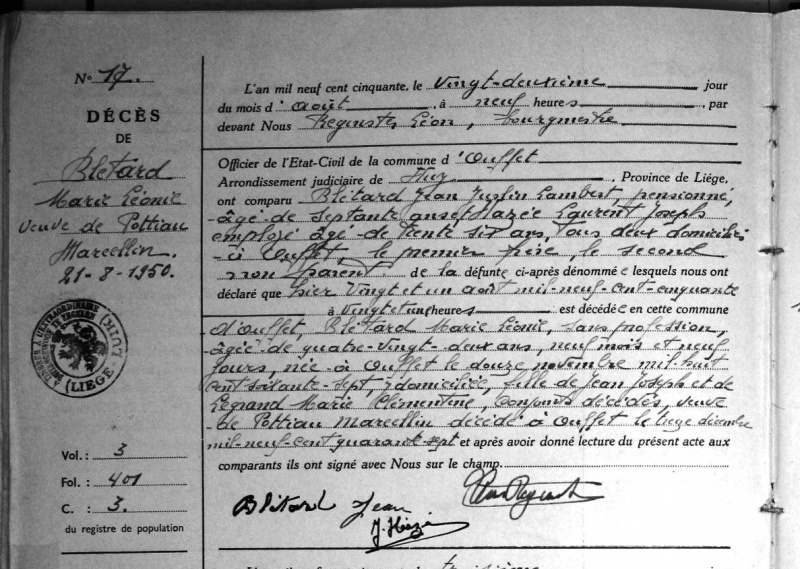 N° 17.
DÉCÈS
DE
Blétard
Marie Léonie
veuve de Pottiau
Marcellin.
21-8-1950.
Vol. : 3
Fol. : 401
C. : 3.
du registre de population
L'an mil neuf cent cinquante, le vingt-deuxième jour
du mois d'août, à neuf heures, par
devant Nous Léon, bourgmestre
Officier de l'Etat-Civil de la commune d'Ouffet
Arrondissement judiciaire de Huy, Province de Liége,
ont comparu Blétard Jean Lambert, pensionné,
âgé de septante ans et Laurent Joseph
employé âgé de trente six ans, tous deux domiciliés
à Ouffet, le premier frère, le second
non parent de la défunte ci-après dénommée lesquels nous ont
déclaré que hier vingt et un août mil-neuf-cent-cinquante
à vingt et un heures est décédée en cette commune
d'Ouffet, Blétard Marie Léonie, sans profession,
âgée de quatre-vingt-deux ans, neuf mois et neuf
jours, née à Ouffet le douze novembre mil huit
cent soixante-sept, y domiciliée, fille de Jean Joseph et de
Legrand Marie Clémentine, conjoints décédés, veuve
de Pottiau Marcellin décédé à Ouffet le décembre
mil-neuf-cent quarante sept et après avoir donné lecture du présent acte aux
comparants ils ont signé avec Nous sur le champ.
Blétard Jean